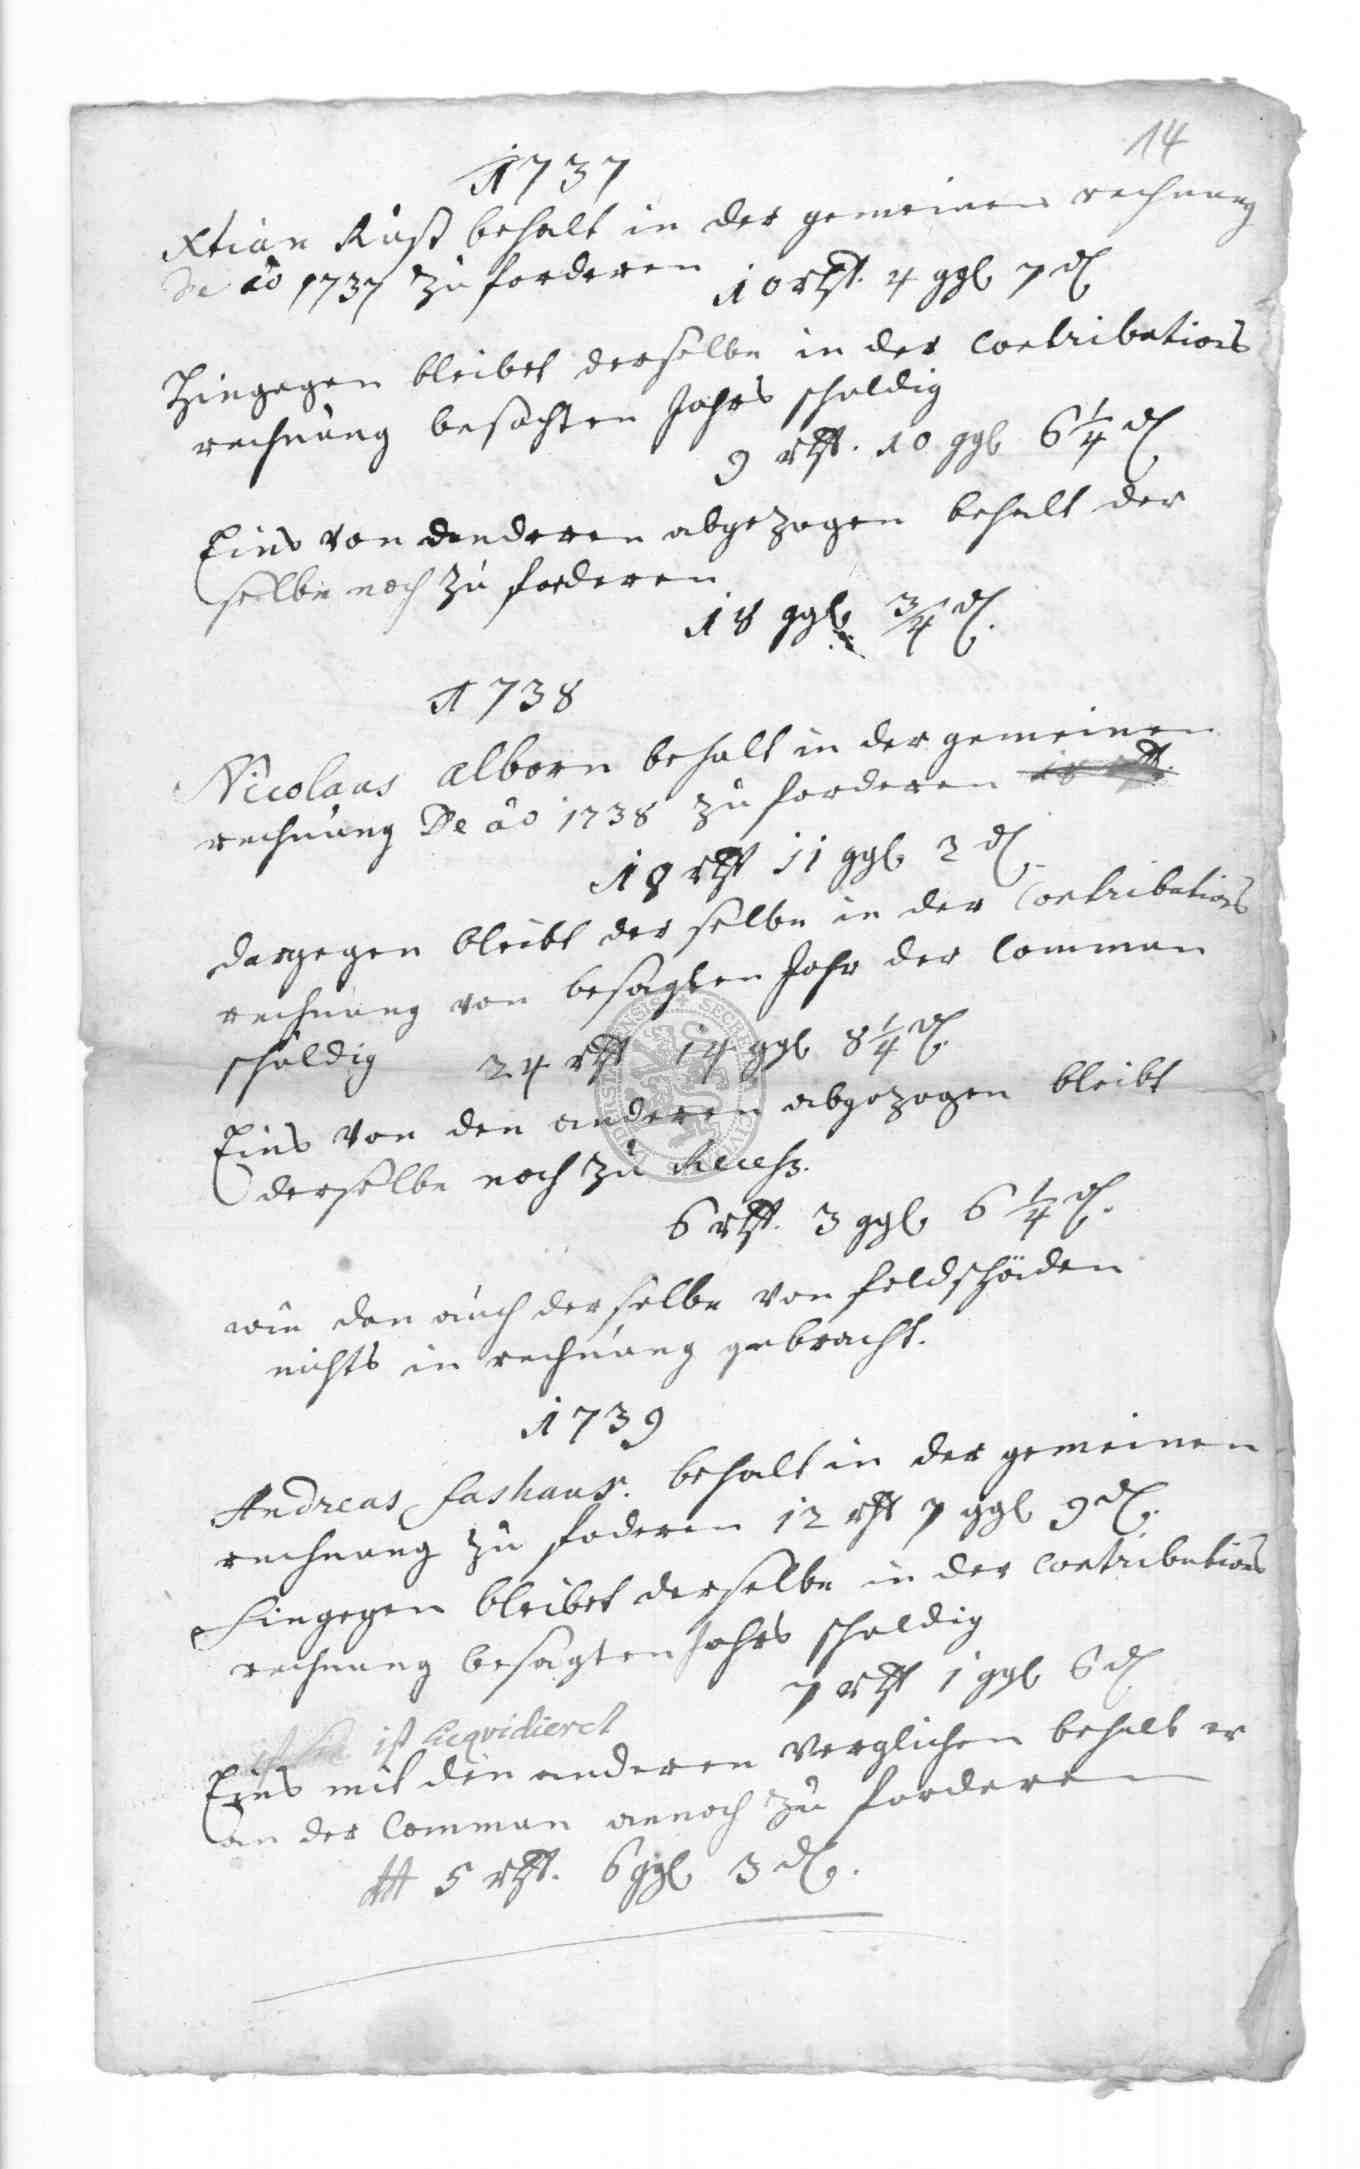 14
1737
Xtian Rust behalt in der gemeinen rechnung
De ao 1737 zu forderen 10 rthl. 4 ggl. 7 d
Hingegen bleibet derselbe in der Contributions
rechnung besagten Jahrs schuldig
9 rthl. 10 ggl 6 1/4 d
Eins von denderen abgezogen behalt der
selbe noch zu forderen
18 ggl. 3/4 d.
1738
Nicolaus Alborn behalt in der gemeinen
rechnung De ao 1738 zu forderen
18 rthl 11 ggl. 2 d
dargegen bleibt der selbe in der Contributions
rechnung von besagten Jahr der Commun
schuldig 24 rthl 14 ggl. 8 1/4 d.
Eins von den anderen abgezogen bleibt
derselbe noch zu Recess.
6 rthl. 3 ggl. 6 1/4 d.
wie dan auch derselbe von feldschäden
nichts in rechnung gebracht.
1739
Andreas Fashaur. behalt in der gemeinen
rechnung zu foderen 12 rthl 7 ggl. 9 d.
Hingegen bleibet derselbe in der Contributions
rechnung besagten Jahrs schuldig
7 rthl 1 ggl. 6 d
ist liqvidieret
Eins mit den anderen verglichen behalt er
an der Commun annoch zu forderen
5 rthl. 6 ggl. 3 d.